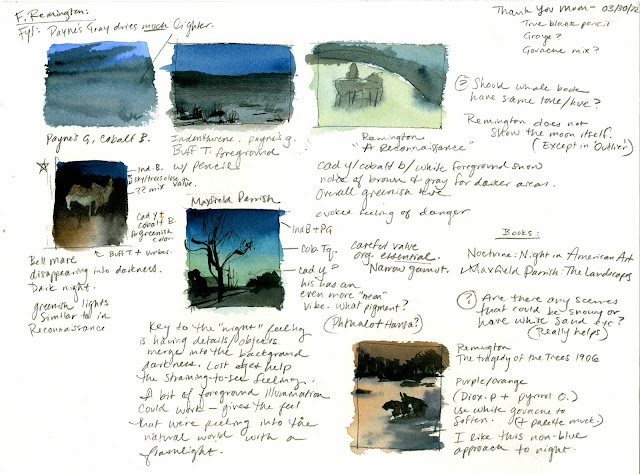 F. Remington:
FYI: Payne's Gray dries much lighter.
Thank You Mom - 03/30/22
True black pencil
Graye?
Govacne mix?
Payne's G, Cobalt B.
Indanthrene. payne's g.
Buff T. foreground
w/ pencil
Remington
"A Reconnaissance"
cad y/cobalt b/white foreground snow
note of brown & gray for darker areas.
Overall greenish hue
evokes feeling of danger
? Should whole book
have same tone/hue?
Remington does not
show the moon itself.
(Except in 'Outlier')
Ind. B.
sky/trees close in
value.
Cad Y +
cobalt B.
for greenish
color
Buff T + umber.
Bell mare
disappearing into darkness.
Dark night.
greenish lights
similar to in
Reconnaissance
Maxfield Parrish
Ind B + PG
Cob. Tq.
cad y?
his has an
even more "neon"
vibe. what pigment?
(Phthalo + Hansa?)
careful value
org. essential.
Narrow gamut.
Key to the "night" feeling
is having details/objects
merge into the background
darkness. Lost edges help
the straining-to-see feeling.
A bit of foreground illumination
could work - gives the feel
that we're peeling into the
natural world with a
flashlight.
Books:
Nocturne: Night in American Art
Maxfield Parrish: The Landscapes
? Are there any scenes
that could be snowy or
have white sand etc?
(Really helps)
Remington
The tragedy of the Trees 1906
Purple/orange
(Diox. p + pyrrol O.)
Use white govacne to
soften. (+ palette muck.)
I like this non-blue
approach to night.